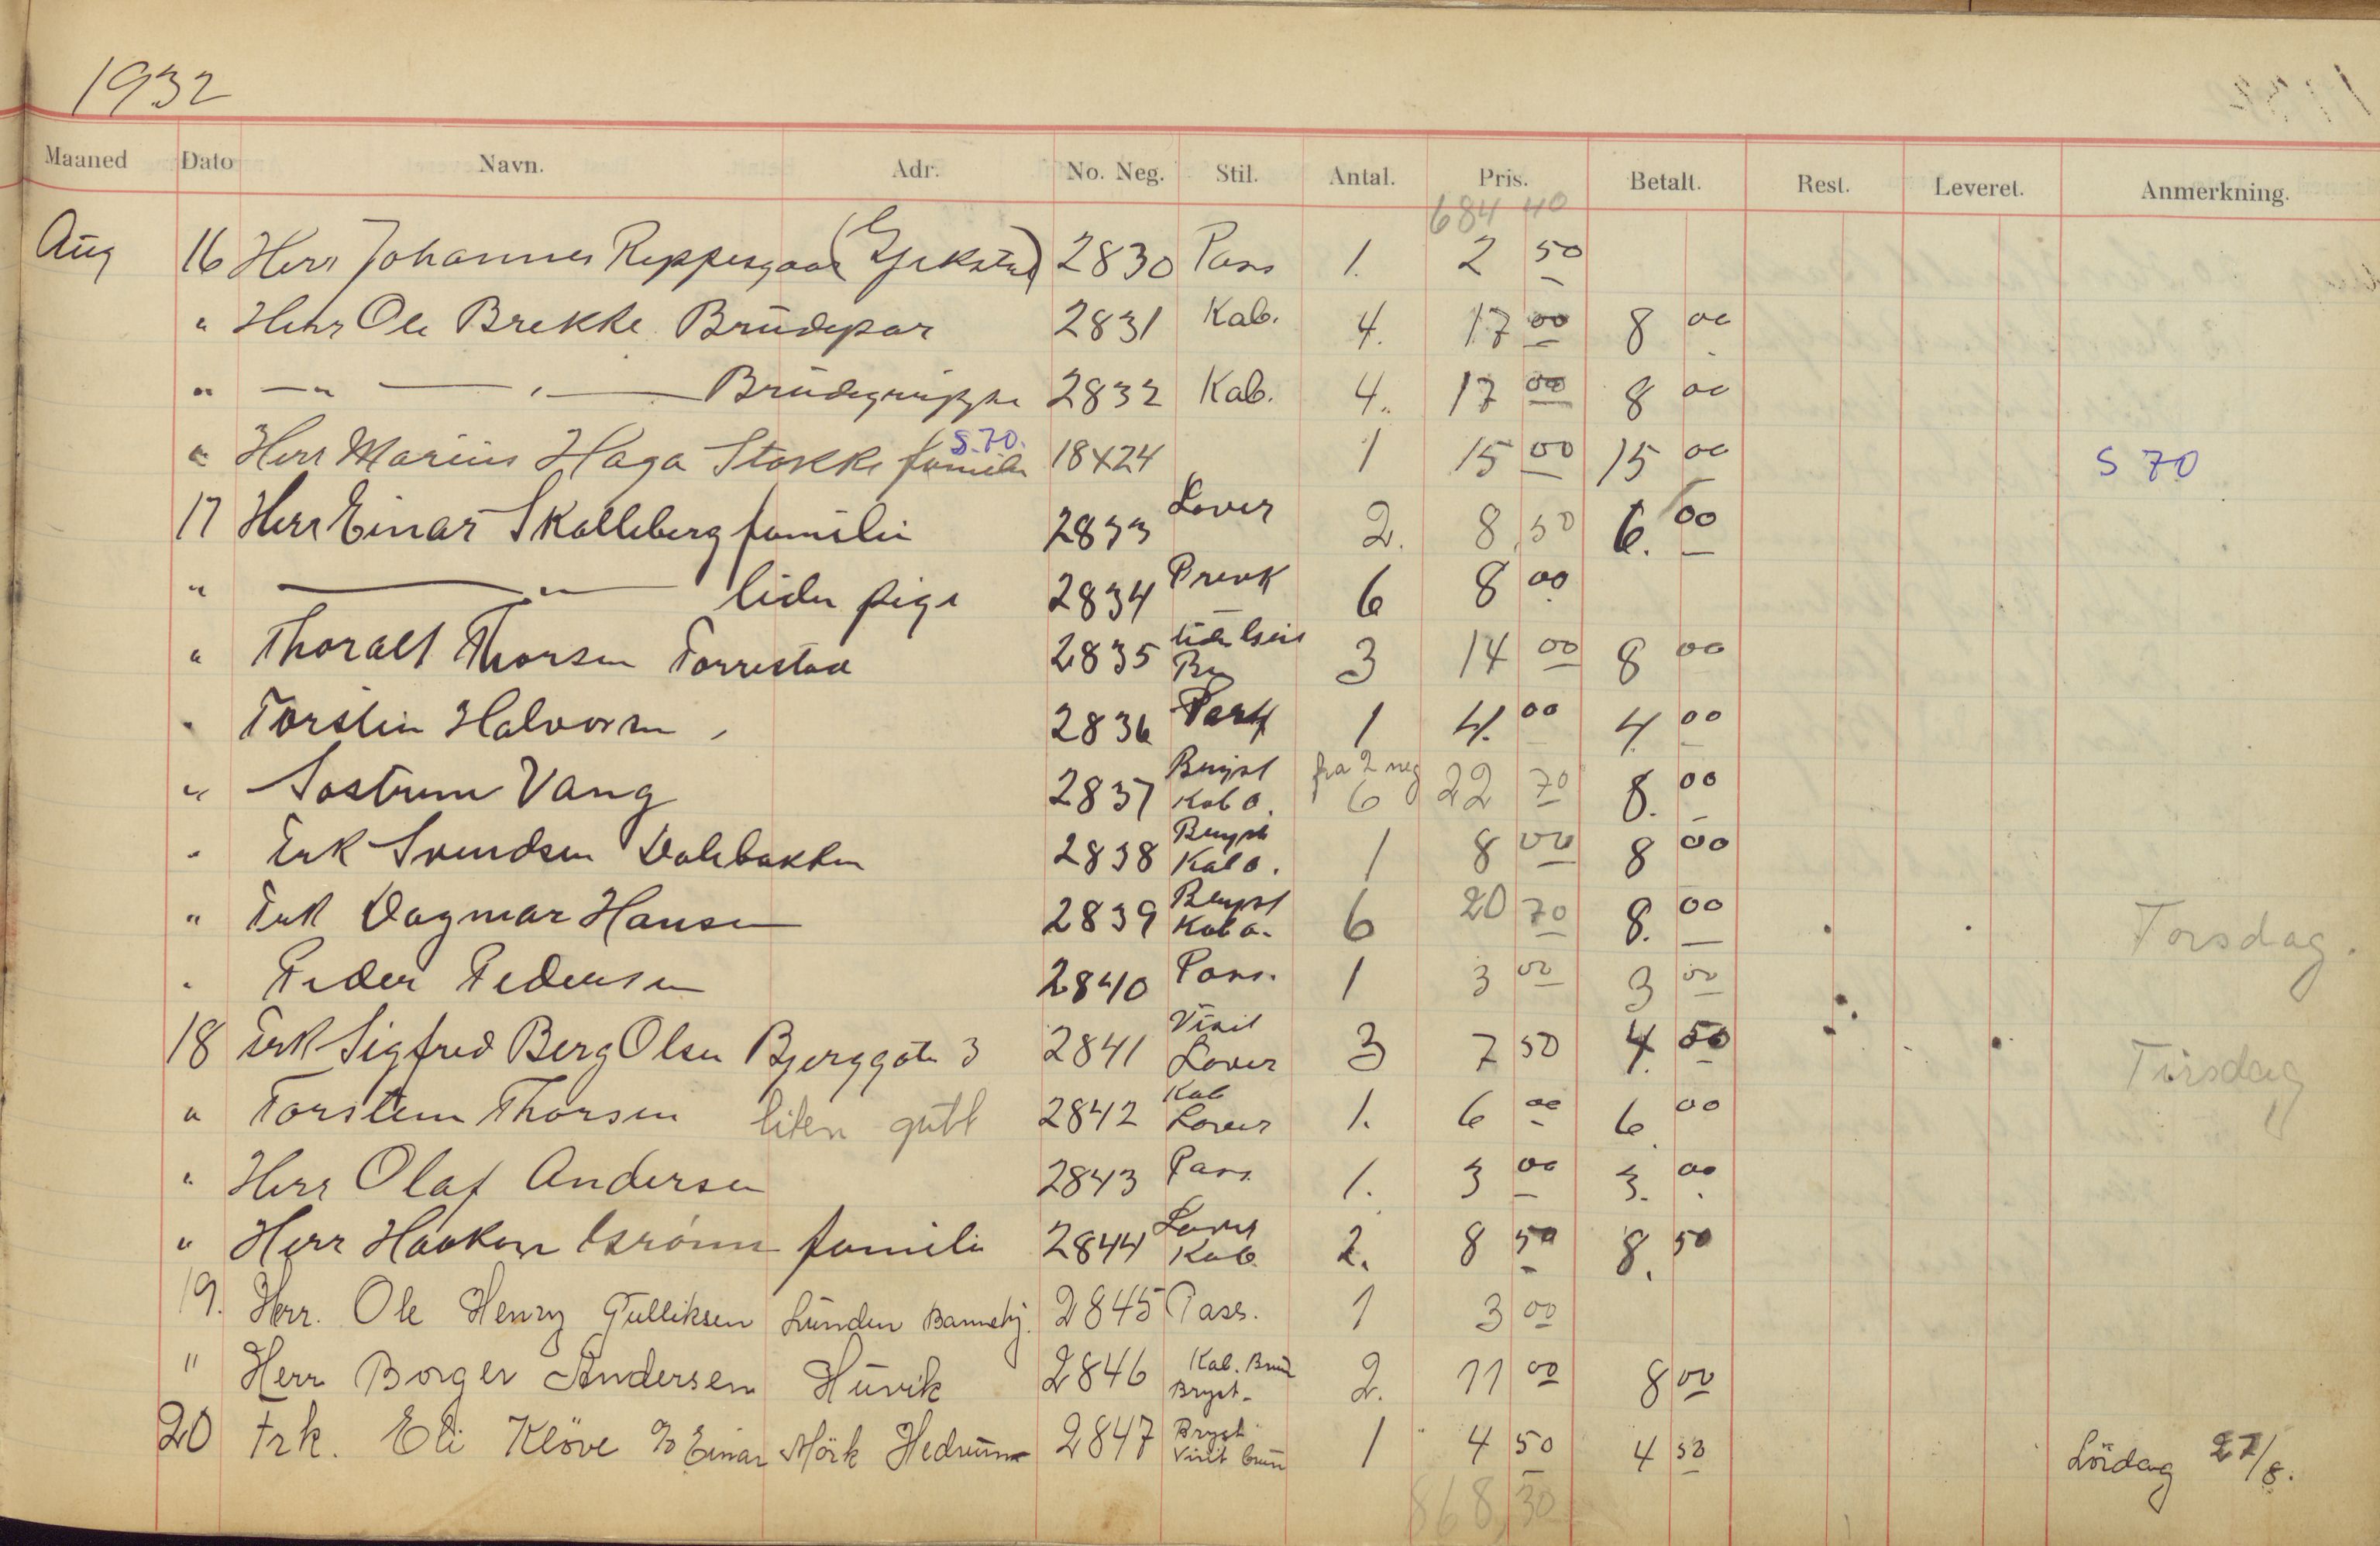 1932
Maaned Dato Navn. Adr. No. Neg. Stil. Antal. Pris. Betalt. Rest. Leveret. Anmerkning.
684 40
Aug 16 Herr Johannes 2830 Pass 1. 2 50
" Herr Ole Brekke Brudepar 2831 Kab. 4. 17 00 8 00
" — " — " — Brudegruppe 2832 Kab. 4. 17 00 8 00
S.70.
" Herr Marius Haga Stokke familie 18x24 1 15 00 15 00 S 70
17 Herr Einar Skalleberg familie 2833 Lover 2. 8,50 6.00
" — " — liden pige 2834 6 8 00
" Thoralf Thorsen Torrestad 2835 3 14 00 8 00
" Torstein Halvorsen 2836 1 4.00 4.00
" Sostrum Vang 2837 Bryst Kab o. fra 2 neg 6 22 70 8.00
" Frk Svendsen Dolebakken 2838 Bryst Kab o. 1 8 00 8 00
" Frk Dagmar Hansen 2839 Bryst Kab o. 6 20 70 8.00 Torsdag.
" Peder Pedersen 2840 Pass. 1 3 00 3 00
18 Frk Sigfred Berg Olsen Bjerggate 3 2841 Visit Lover 3 7 50 4.50 Tirsdag
" Torstein Thorsen liten gutt 2842 Kab Lover 1. 6 00 6.00
" Herr Olaf Andersen 2843 Pass. 1. 3 00 3.00
" Herr Haakon familie 2844 Lover Kab. 2. 8 50 8.50
19. Herr. Ole Henry Gulliksen Lunden 2845 Pass. 1 3 00
" Herr Borger Andersen Huvik 2846 Kab. Brun Bryst. 2. 11 00 8 00
20 Frk. Eli Klöve c/o Einar Mörk Hedrum 2847 Bryst Visit brun 1 4 50 4 50 Lördag 27/8.
868,30